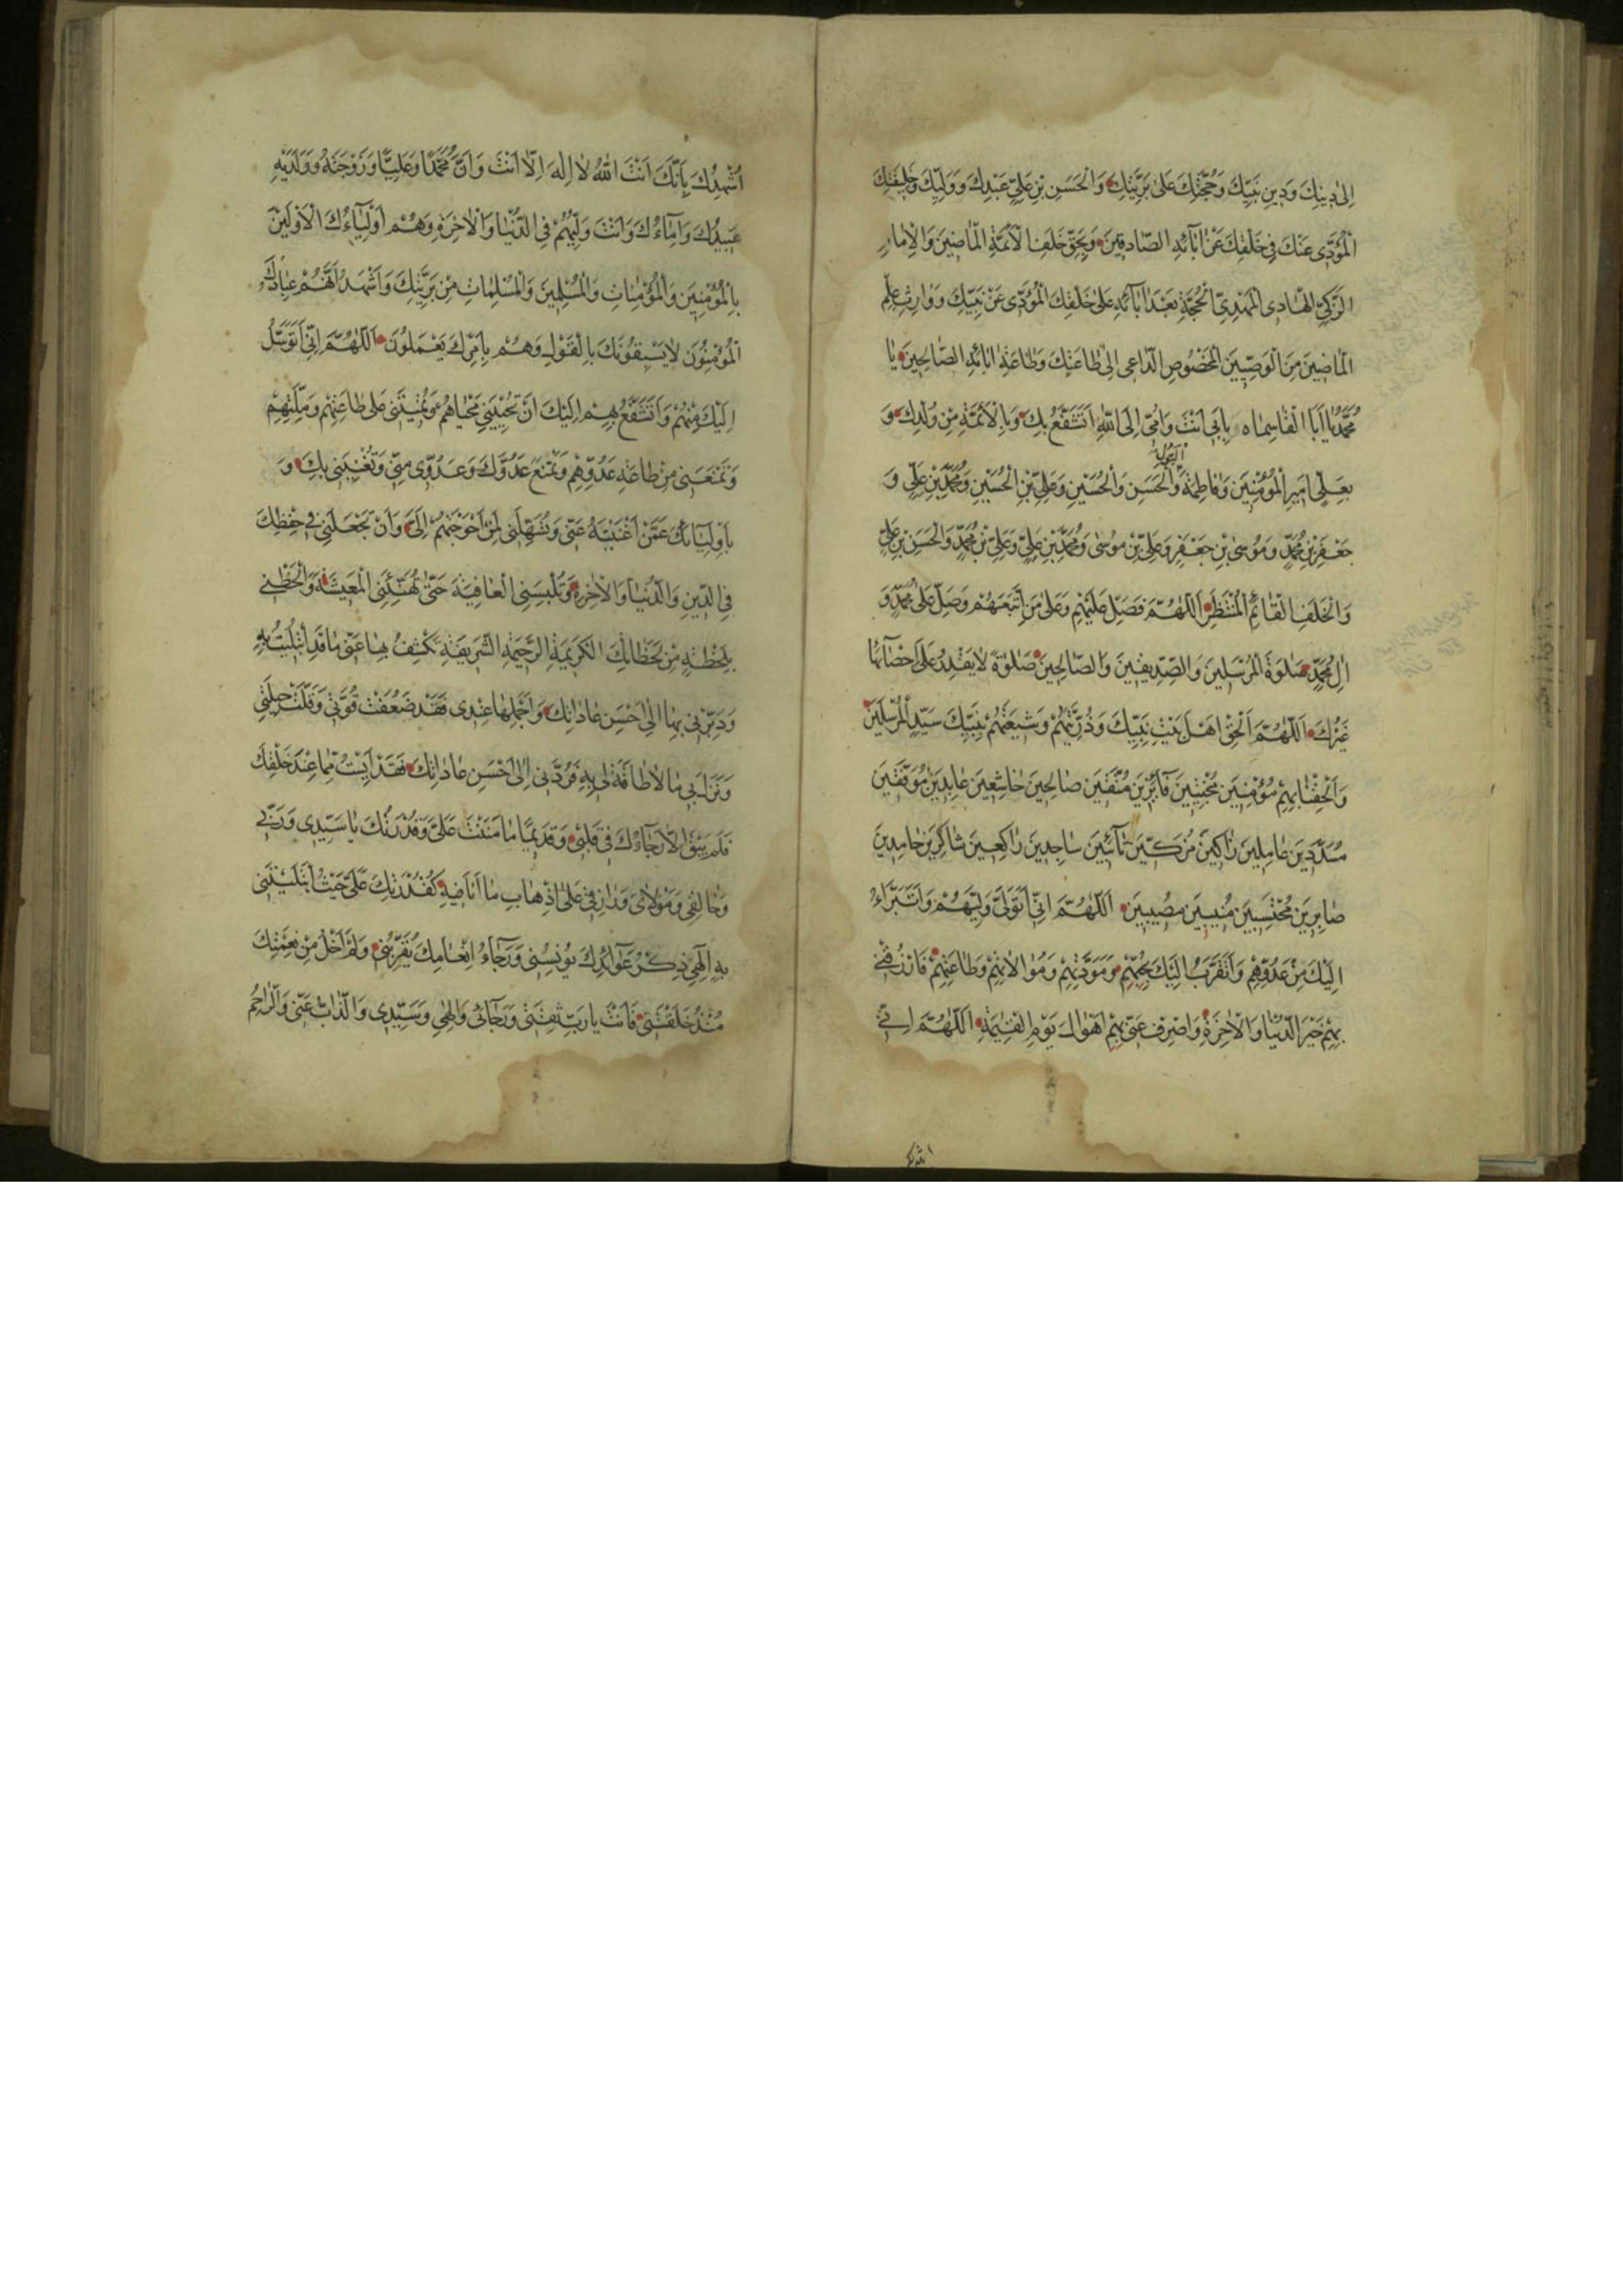 اِلىٰ دِينِكَ وَدِينِ نَبِيِّكَ وَحُجَّتِكَ عَلىٰ بَرِيَّتِكَ وَالْحَسَنِ بْنِ عَلِيٍّ عَبْدِكَ وَوَلِيِّكَ وَخَلِيفَتِكَ
الْمُؤَدّى عَنْكَ فِي خَلْقِكَ عَنْ اٰبَآئِهِ الصّادِقِينَ وَبِحَقِّ خَلَفِ الْاَئِمَّةِ الْمٰاضِينَ وَالْاِمٰامِ
الزَّكِيِّ الهٰادِي الْمَهْدِيِّ الْحُجَّةِ بَعْدَ اٰبَآئِهِ عَلىٰ خَلْقِكَ الْمُؤَدّى عَنْ نَبِيِّكَ وَوٰارِثِ عِلْمِ
الْمٰاضِينَ مِنَ الْوَصِيِّينَ الْمَخْصُوصِ الدّاعِى اِلىٰ طٰاعَتِكَ وَطٰاعَةِ اٰبٰائِهِ الصّالِحِينَ يٰا
مُحَمَّدُ يٰا اَبَا الْقٰاسِمٰاه بِاَبى اَنْتَ وَاُمّى اِلَى اللّٰهِ اَتَشَفَّعُ بِكَ وَبِالْاَئِمَّةِ مِنْ وُلْدِكَ وَ
بِعَلِىٍّ اَمِيرِ الْمُؤْمِنِينَ وَفٰاطِمَةَ وَالْحَسَنِ وَالْحُسَيْنِ وَعَلِىِّ بْنِ الْحُسَيْنِ وَمُحَمَّدِ بْنِ عَلِىٍّ وَ
جَعْفَرِ بْنِ مُحَمَّدٍ وَمُوسىٰ بْنِ جَعْفَرٍ وَعَلِىِّ بْنِ مُوسىٰ وَمُحَمَّدِ بْنِ عَلِىٍّ وَعَلِىِّ بْنِ مُحَمَّدٍ وَالْحَسَنِ بْنِ عَلِىٍّ
وَالْخَلَفِ الْقٰائِمِ الْمُنْتَظَرِ اَللّٰهُمَّ فَصَلِّ عَلَيْهِمْ وَعَلىٰ مَنِ اتَّبَعَهُمْ وَصَلِّ عَلىٰ مُحَمَّدٍ وَ
اٰلِ مُحَمَّدٍ صَلٰوةَ الْمُرْسَلِينَ وَالصِّدِّيقِينَ وَالصّٰالِحِينَ صَلٰوةً لٰا يَقْدِرُ عَلىٰ اِحْصٰآئِهٰا
غَيْرُكَ اَللّٰهُمَّ اَلْحِقْ اَهْلَ بَيْتِ نَبِيِّكَ وَذُرِّيَّتَهُمْ وَشِيعَتَهُمْ بِنَبِيِّكَ سَيِّدِ الْمُرْسَلِينَ
وَاَلْحِقْنٰا بِهِمْ مُؤْمِنِينَ مُخْبِتِينَ فٰآئِزِينَ مُتَّقِينَ صٰالِحِينَ خٰاشِعِينَ عٰابِدِينَ مُوَفَّقِينَ
مُسَدَّدِينَ عٰامِلِينَ زٰاكِينَ مُزَكّينَ تٰآئِبِينَ سٰاجِدِينَ رٰاكِعِينَ شٰاكِرِينَ حٰامِدِينَ
صٰابِرِينَ مُحْتَسِبِينَ مُنِيبِينَ مُصِيبِينَ اَللّٰهُمَّ اِنّى اَتَوَلّىٰ وَلِيَّهُمْ وَاَتَبَرَّاءُ
اِلَيْكَ مِنْ عَدُوِّهِمْ وَاَتَقَرَّبُ اِلَيْكَ بِحُبِّهِمْ وَمَوَدَّتِهِمْ وَمُوٰالٰاتِهِمْ وَطٰاعَتِهِمْ فَارْزُقْنِى
بِهِمْ خَيْرَ الدُّنْيٰا وَالْاٰخِرَةِ وَاصْرِفْ عَنّى بِهِمْ اَهْوٰالَ يَوْمِ الْقِيٰمَةِ اَللّٰهُمَّ اِنّى
اُشْهِدُكَ بِاَنَّكَ اَنْتَ اللّٰهُ لٰا اِلٰهَ اِلّٰا اَنْتَ وَاَنَّ مُحَمَّدًا وَعَلِيًّا وَزَوْجَتَهُ وَوَلَدَيْهِ
عَبِيدُكَ وَاِمٰاءُكَ وَاَنْتَ وَلِيُّهُمْ فِى الدُّنْيٰا وَالْاٰخِرَةِ وَهُمْ اَوْلِيٰآءُكَ الْاَوَّلِينَ
بِالْمُؤْمِنِينَ وَالْمُؤْمِنٰاتِ وَالْمُسْلِمِينَ وَالْمُسْلِمٰاتِ مِنْ بَرِيَّتِكَ وَاَشْهَدُ اَنَّهُمْ عِبٰادُكَ
الْمُؤْمِنُونَ لٰا يَسْبِقُونَكَ بِالْقَوْلِ وَهُمْ بِاَمْرِكَ يَعْمَلُونَ اَللّٰهُمَّ اِنّى اَتَوَسَّلُ
اِلَيْكَ مِنْهُمْ وَاَتَشَفَّعُ بِهِمْ اِلَيْكَ اَنْ تُحْيِيَنِى مَحْيٰاهُمْ وَتُمِيتَنِى عَلىٰ طٰاعَتِهِمْ وَمِلَّتِهِمْ
وَتَمْنَعَنِى مِنْ طٰاعَةِ عَدُوِّهِمْ وَتَمْنَعَ عَدُوَّكَ وَعَدُوّى مِنّى وَتُغْنِيَنِى بِكَ وَ
بِاَوْلِيٰائِكَ عَمَّنْ اَغْنَيْتَهُ عَنّى وَتُسَهِّلَنِى لِمَنْ اَحْوَجْتَهُمْ اِلَىَّ وَاَنْ تَجْعَلَنِى فِى حِفْظِكَ
فِى الدّينِ وَالدُّنْيٰا وَالْاٰخِرَةِ وَتُلْبِسَنِى الْعٰافِيَةَ حَتّىٰ تُهَنِّئَنِى الْمَعِيشَةَ وَالْحَظْنِى
بِلَحْظَةٍ مِنْ لَحَظٰاتِكَ الْكَرِيمَةِ الرَّحِيمَةِ الشَّرِيفَةِ تَكْشِفُ بِهٰا عَنّى مٰا قَدِ ابْتُلِيتُ بِهِ
وَدَبِّرْنِى بِهٰا اِلىٰ اَحْسَنِ عٰادٰاتِكَ وَاَجْمَلِهٰا عِنْدِى فَقَدْ ضَعُفَتْ قُوَّتِى وَقَلَّتْ حِيلَتِى
وَنَزَلَ بِى مٰا لٰا طٰاقَةَ لِى بِهِ فَرُدَّنِى اِلىٰ اَحْسَنِ عٰادٰاتِكَ فَقَدْ اَيِسْتُ مِمّٰا عِنْدَ خَلْقِكَ
فَلَمْ يَبْقَ اِلّٰا رَجٰآءُكَ فِى قَلْبِى وَقَدِيمًا مٰا مَنَنْتَ عَلَىَّ وَقُدْرَتُكَ يٰا سَيِّدِى وَرَبّى
وَخٰالِقِى وَمَوْلٰاىَ وَرٰازِقِى عَلىٰ اِذْهٰابِ مٰا اَنَا فِيهِ كَقُدْرَتِكَ عَلَىَّ حَيْثُ ابْتَلَيْتَنِى
بِهِ اِلٰهِى ذِكْرُ عَوٰائِدِكَ يُونِسُنِى وَرَجٰآءُ اِنْعٰامِكَ يُقَرِّبُنِى وَلَمْ اَخْلُ مِنْ نِعْمَتِكَ
مُنْذُ خَلَقْتَنِى فَاَنْتَ يٰا رَبِّ ثِقَتِى وَرَجٰآئِى وَاِلٰهِى وَسَيِّدِى وَالذّٰابُّ عَنّى وَالرّٰاحِمُ